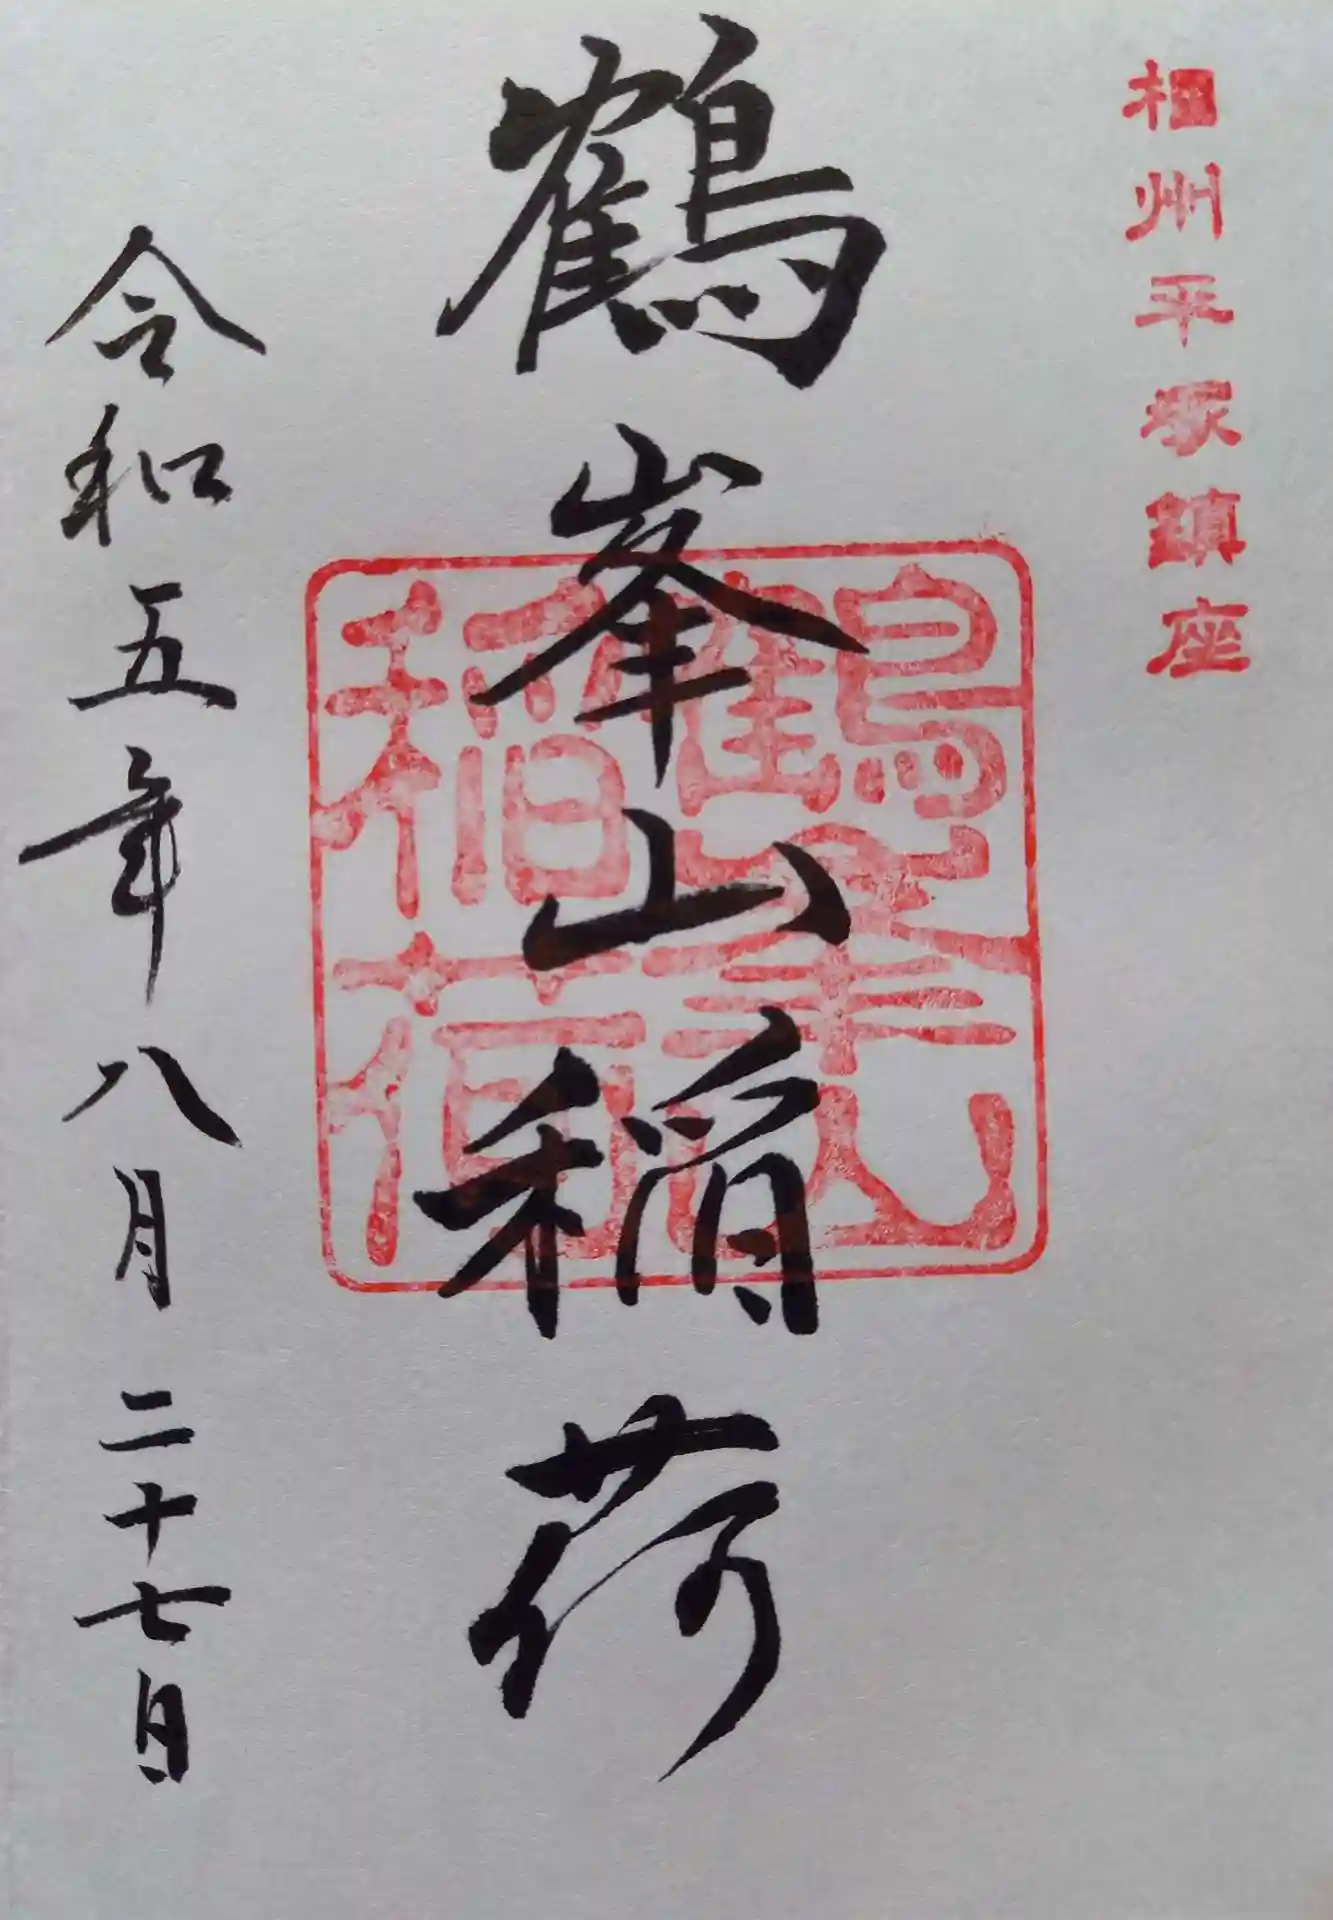 相州平塚鎮座
鶴峯山稲荷
鶴峯山
稲荷
令和五年八月二十七日